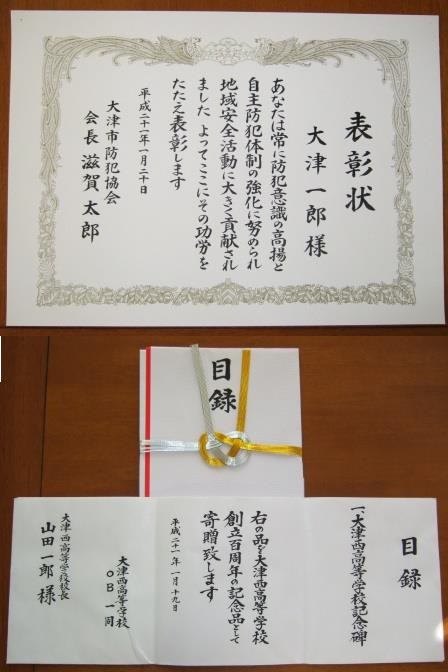 表彰状
大津一郎様
あなたは常に防犯意識の高揚と
自主防犯体制の強化に努められ
地域安全活動に大きく貢献され
ました よってここにその功労を
たたえ表彰します
平成二十一年一月二十日
大津市防犯協会
会長 滋賀太郎
目録
目録
一、大津西高等学校記念碑
右の品を大津西高等学校
創立百周年の記念品として
寄贈致します
平成二十一年一月十九日
大津西高等学校
OB一同
大津西高等学校校長
山田一郎様